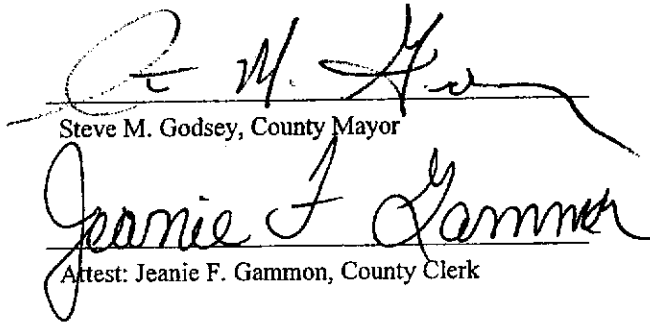 Steve M. Godsey, County Mayor
Jeanie F Gammon
Attest: Jeanie F. Gammon, County Clerk